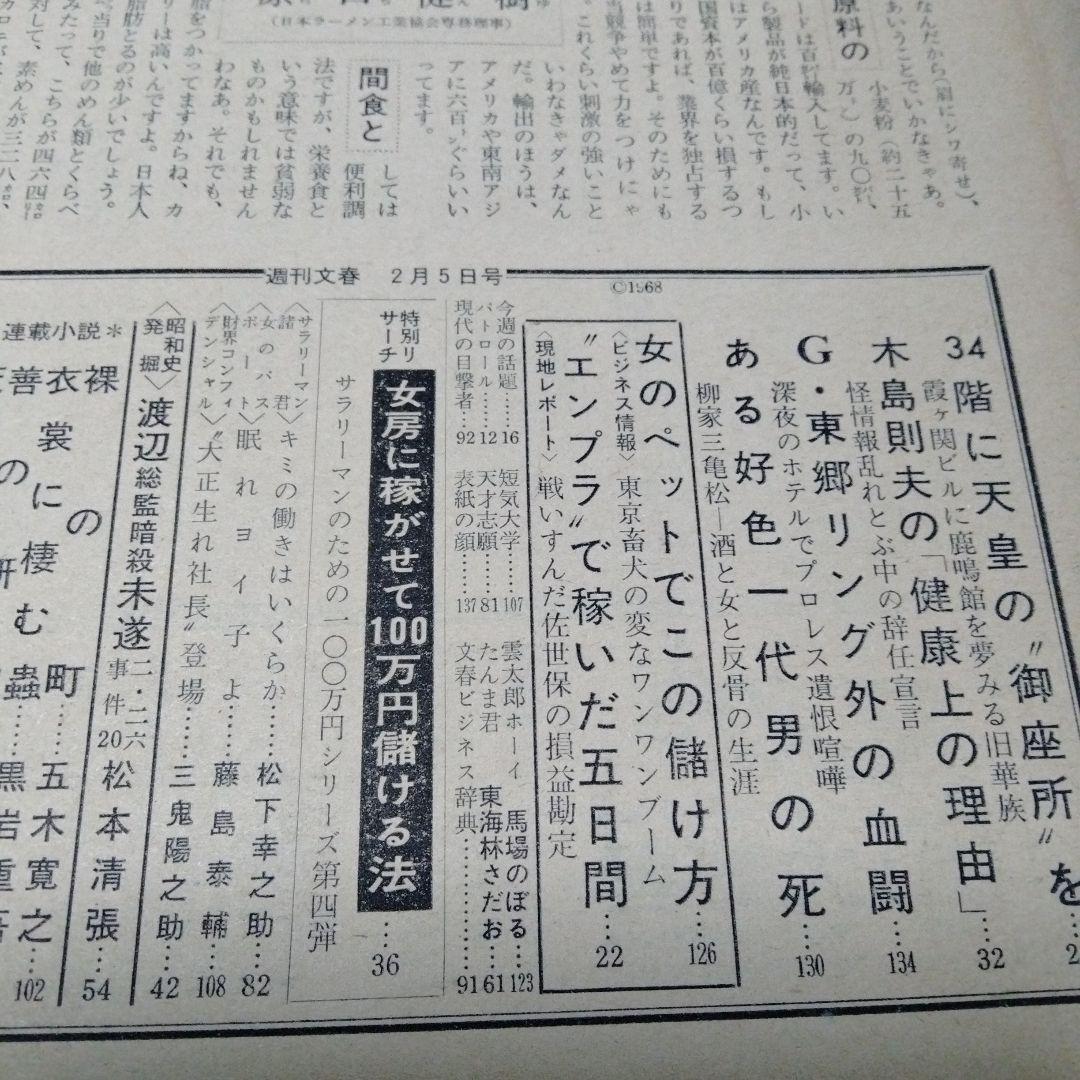 (日本ラーメン工業協会専務理事)
原料の
なんだから(眉にシワ寄せ)、
あいうことでいかなきゃあ。
小麦粉(約二十五
ードは百㌫輸入してます。い
ら製品が純日本的だって、小
はアメリカ産なんです。もし
国資本が百億くらい損するつ
りであれば、業界を独占する
は簡単ですよ。そのためにも
当競争やめて力をつけにゃ
。これくらい刺激の強いこと
いわなきゃダメなん
だ。輸出のほうは、
アメリカや東南アジ
アに六百㌧ぐらいい
ってます。
間食と
しては
便利調
法ですが、栄養食と
いう意味では貧弱な
ものかもしれません
わなあ。それでも、
脂をつかってますからね、カ
リーは高いんですよ。日本人
脂肪とるのが少いでしょう。
べ当りで他のめん類とくらべ
みたって、こちらが四六四㌍
対して、素めんが三二八㌍、
週刊文春 2月5日号
©1968
34階に天皇の“御座所”を
霞ヶ関ビルに鹿鳴館を夢みる旧華族
木島則夫の「健康上の理由」…32
怪情報乱れとぶ中の辞任宣言
G・東郷リング外の血闘…134
深夜のホテルでプロレス遺恨喧嘩
ある好色一代男の死…130
柳家三亀松―酒と女と反骨の生涯
女のペットでこの儲け方…126
〈ビジネス情報〉東京畜犬の変なワンワンブーム
“エンプラ”で稼いだ五日間…22
〈現地レポート〉戦いすんだ佐世保の損益勘定
今週の話題……16
パトロール……12
現代の目撃者…92
短気大学………107
天才志願………81
表紙の顔………137
雲太郎ホーイ 馬場のぼる…123
たんま君 東海林さだお…61
文春ビジネス辞典………91
特別リサーチ
女房に稼がせて100万円儲ける法…36
サラリーマンのための一〇〇万円シリーズ第四弾
〈サラリーマン諸君〉キミの働きはいくらか…松下幸之助…82
〈女のパスポート〉眠れヨイ子よ…藤島泰輔…108
〈財界コンフィデンシャル〉“大正生れ社長”登場…三鬼陽之助…42
〈昭和史発掘〉渡辺総監暗殺未遂二・二六事件20 松本清張…54
連載小説＊
裸の町……五木寛之…102
衣裳に棲む蟲
黒岩重吾
善の研